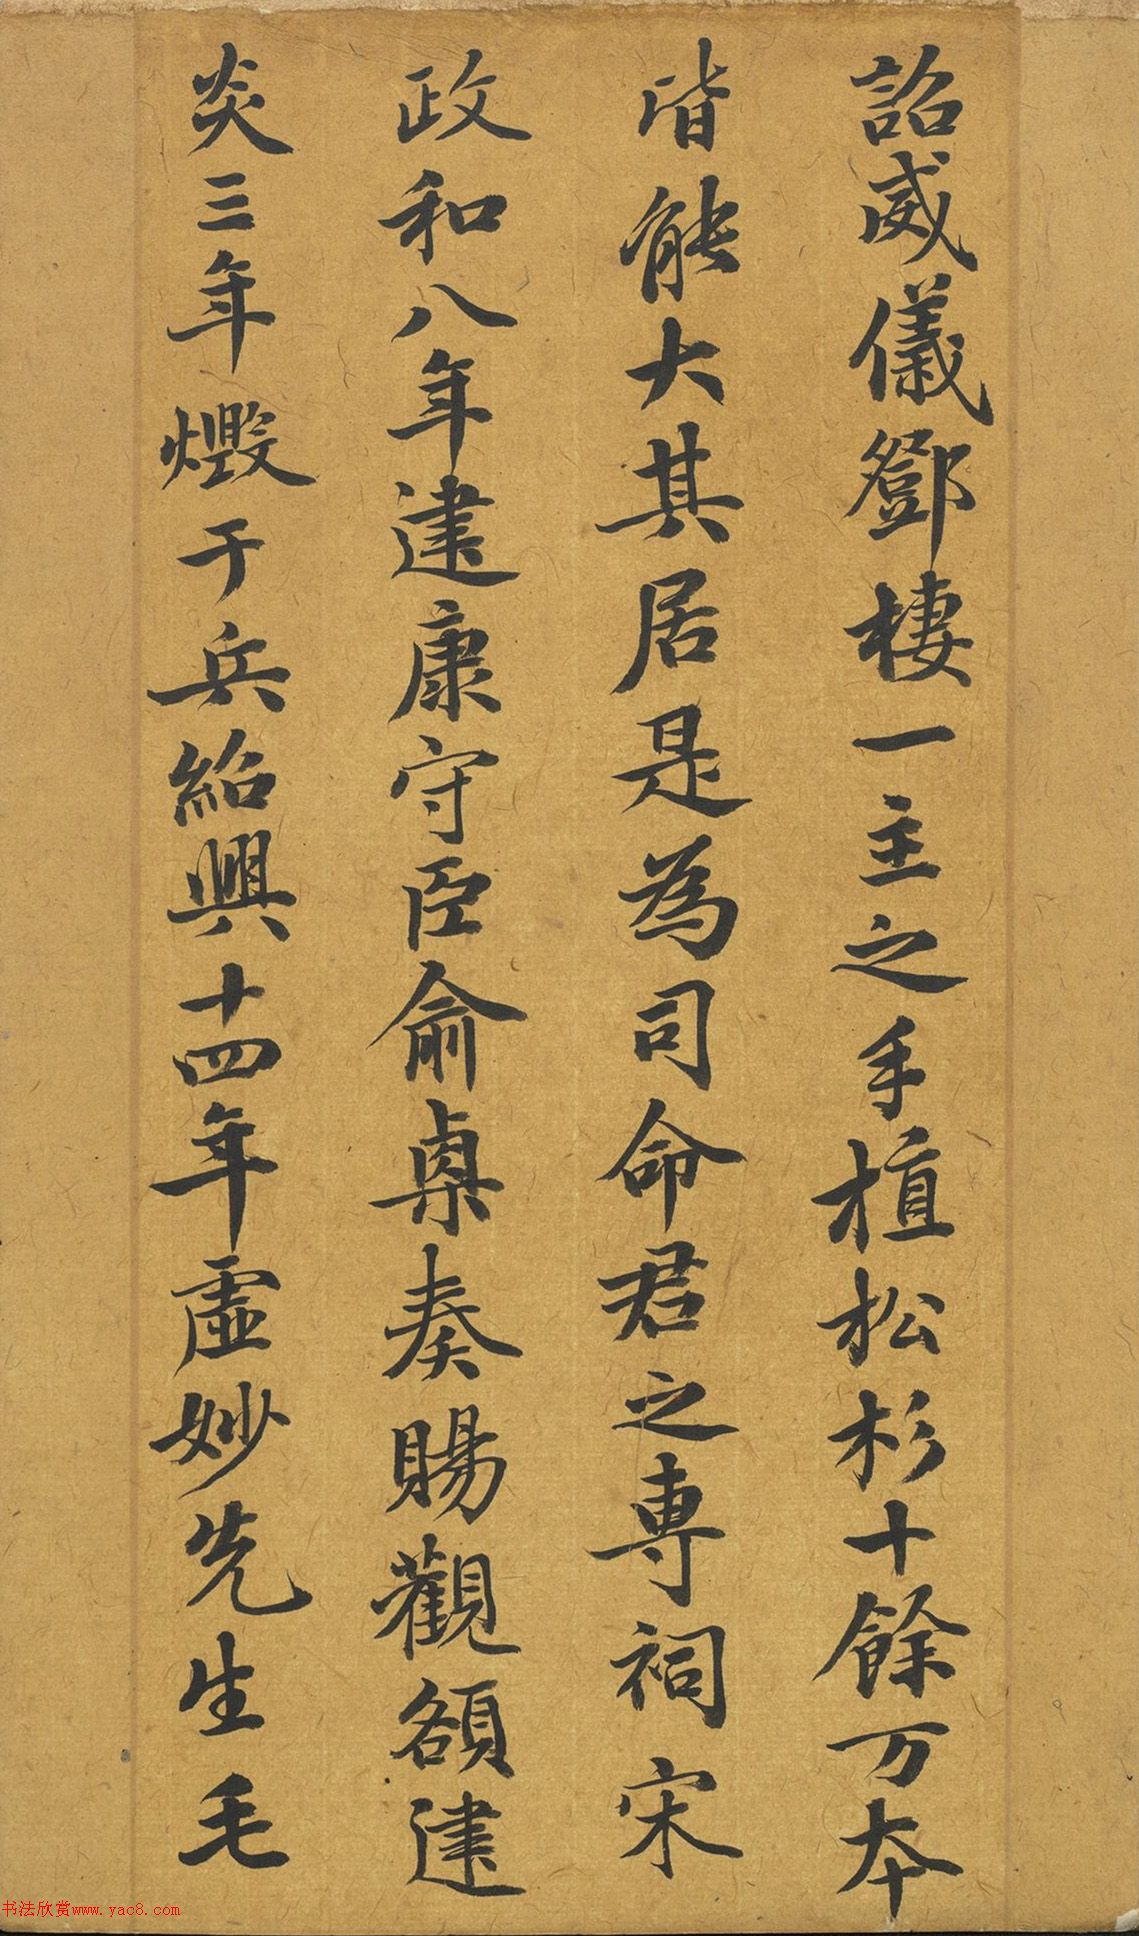 詔威儀鄧棲一主之手植松杉十餘万本
皆能大其居是為司命君之專祠宋
政和八年建康守臣俞㮚奏賜觀額建
炎三年燬于兵紹興十四年虛妙先生毛
书法欣赏www.yac8.com